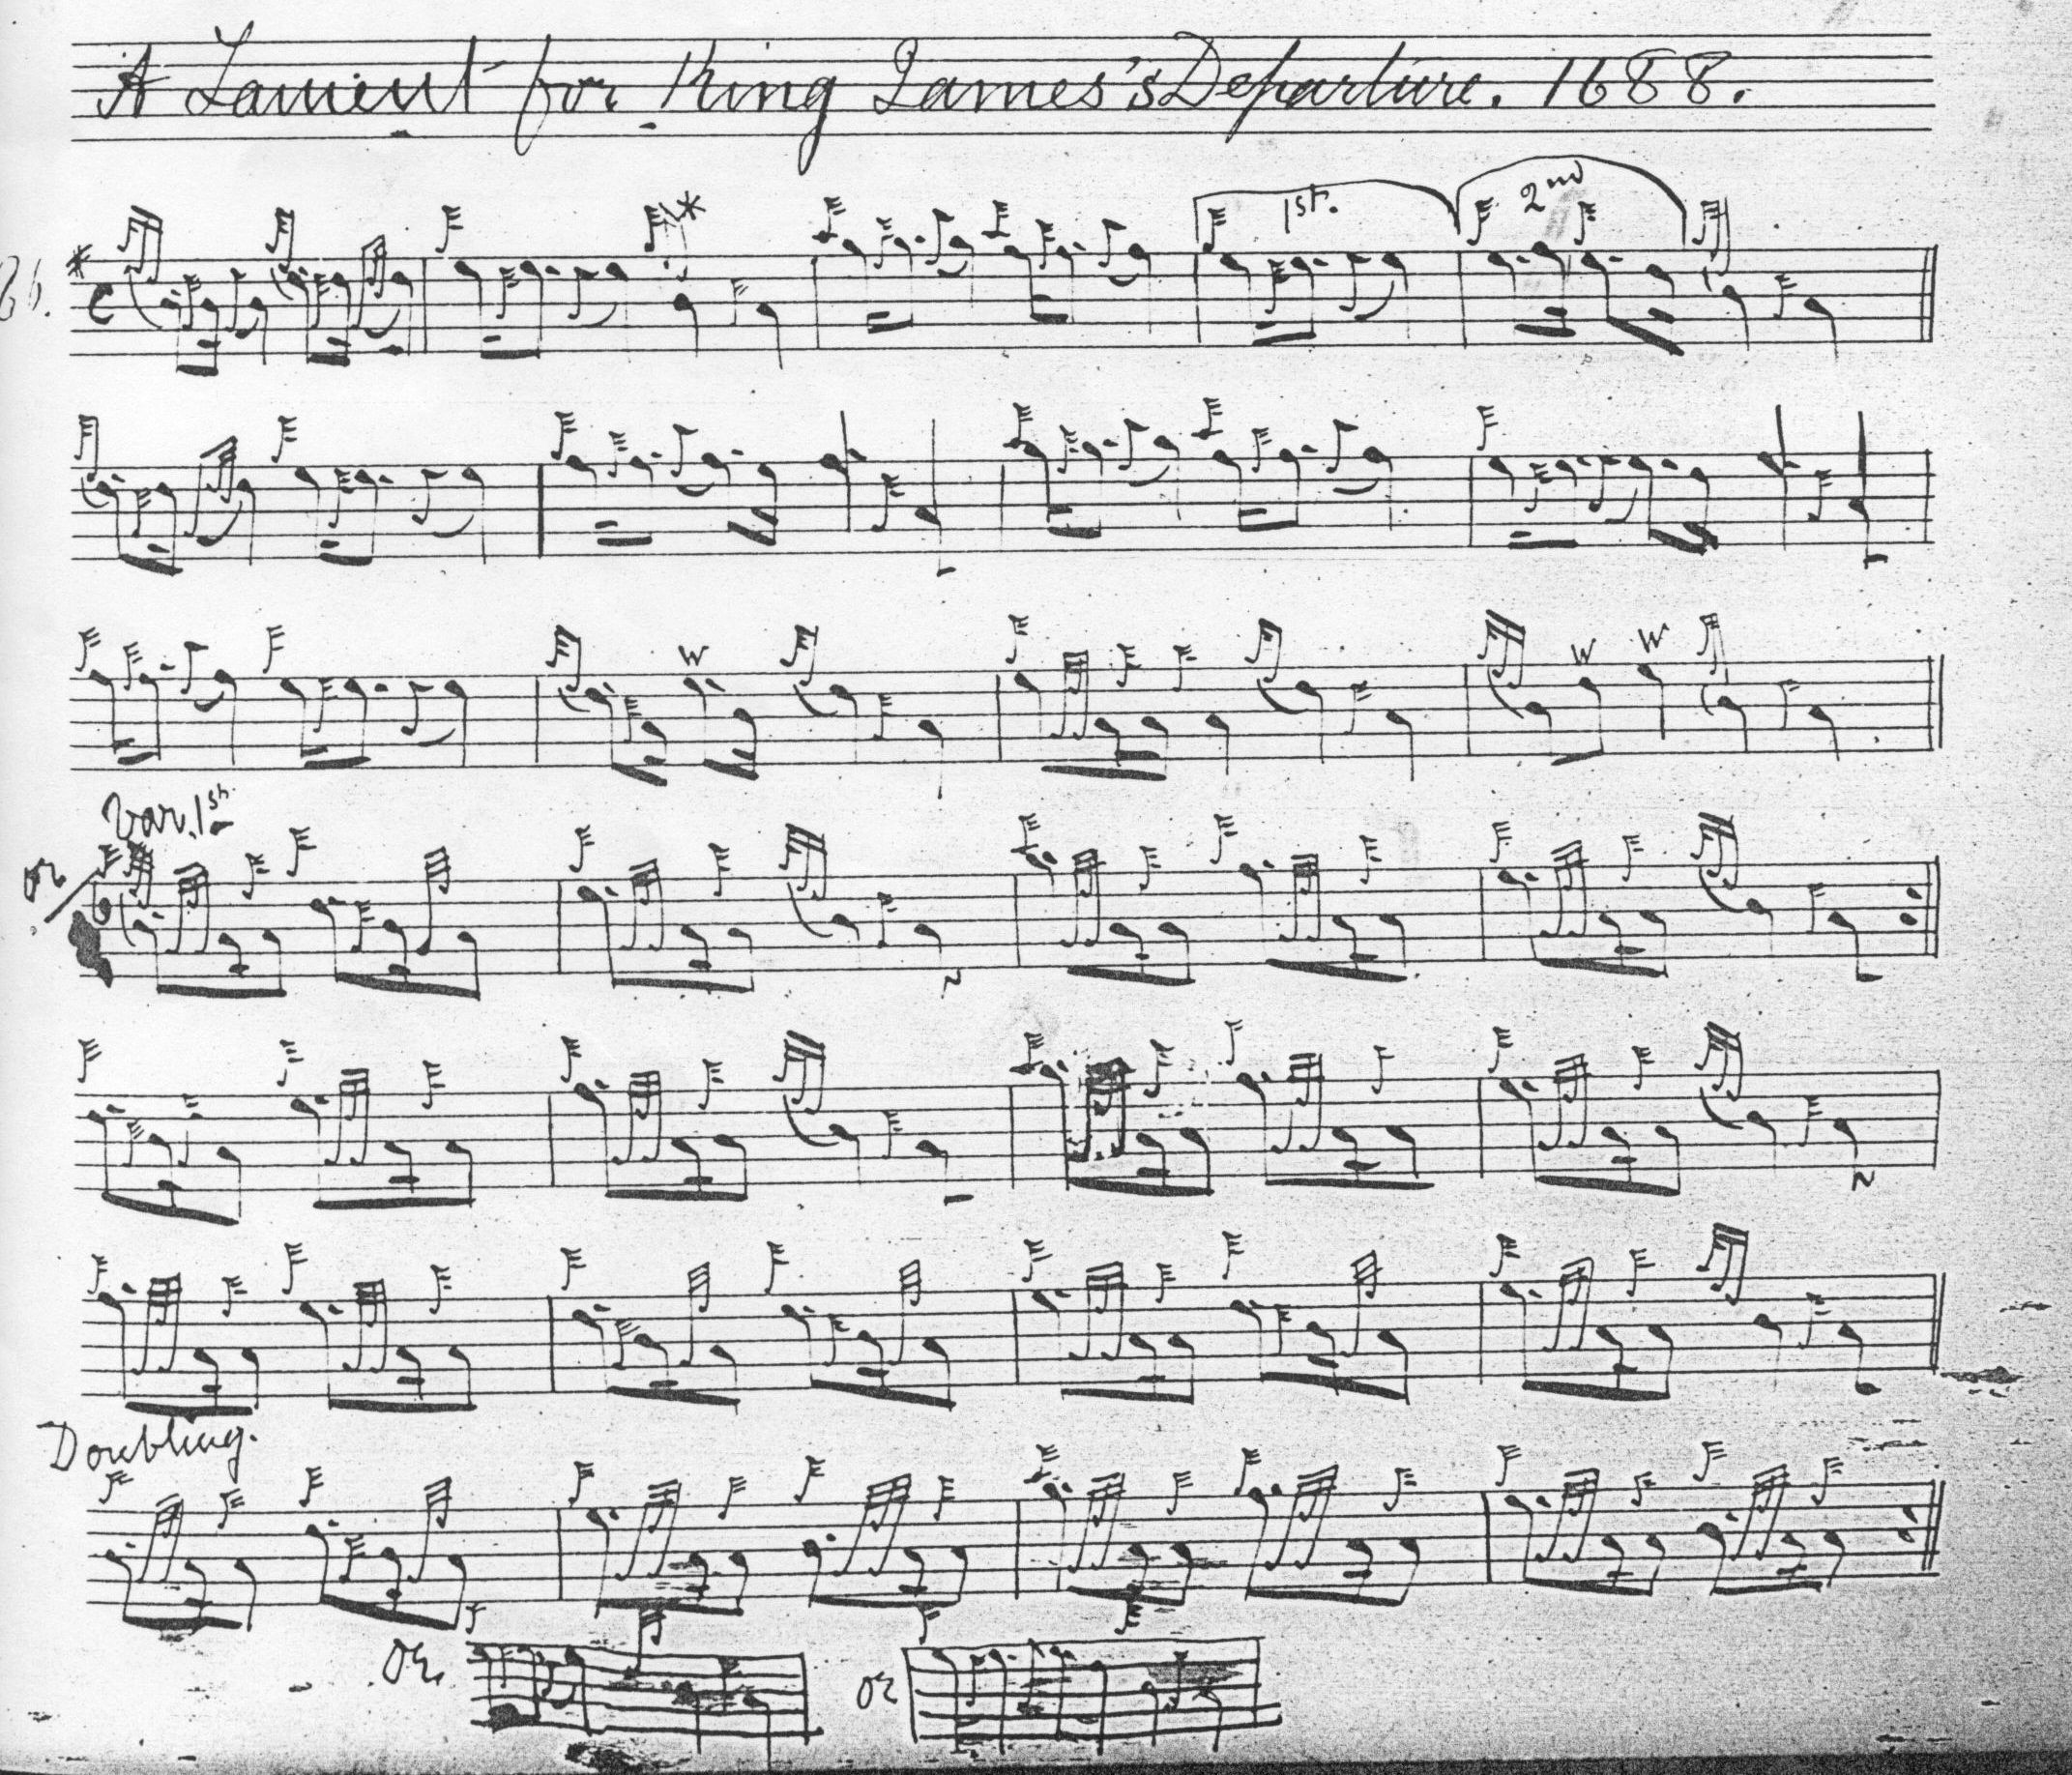 A Lament for King James's Departure. 1688.
1st. 2nd
W
W W
Var. 1st
or
Doubling.
or or